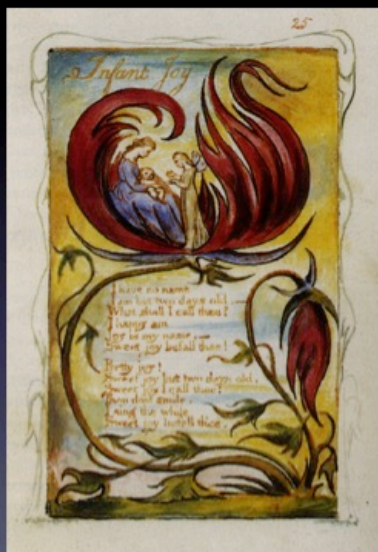 25
Infant Joy
I have no name
I am but two days old.—
What shall I call thee?
I happy am
Joy is my name.—
Sweet joy befall thee!
Pretty joy!
Sweet joy but two days old,
Sweet joy I call thee;
Thou dost smile.
I sing the while
Sweet joy befall thee.